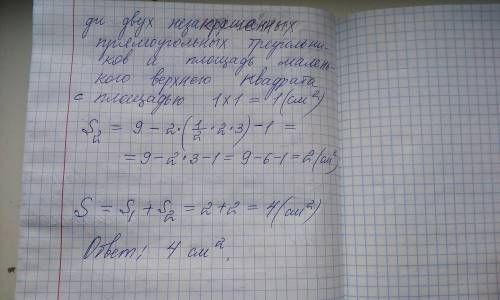 ди двух незакрашенных
прямоугольных треугольни-
ков и площадь малень-
кого верхнего квадрата
с площадью 1×1 = 1 (см²)
S₂ = 9 - 2·(1/2 · 2 · 3) - 1 =
= 9 - 2·3 - 1 = 9 - 6 - 1 = 2 (см²)
S = S₁ + S₂ = 2 + 2 = 4 (см²)
Ответ: 4 см².